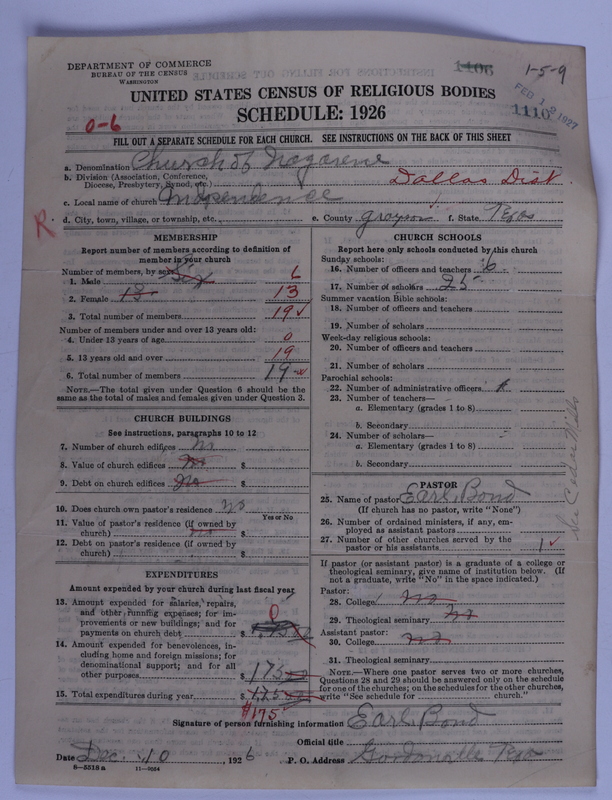 DEPARTMENT OF COMMERCE
BUREAU OF THE CENSUS
WASHINGTON
1106
1-5-9
FEB 1 1927
1110
UNITED STATES CENSUS OF RELIGIOUS BODIES
SCHEDULE: 1926
0-6
FILL OUT A SEPARATE SCHEDULE FOR EACH CHURCH. SEE INSTRUCTIONS ON THE BACK OF THIS SHEET
a. Denomination Church of Nazarene
b. Division (Association, Conference, Diocese, Presbytery, Synod, etc.) Dallas Dist
c. Local name of church Independence
R
d. City, town, village, or township, etc. e. County Grayson f. State Texas
MEMBERSHIP
Report number of members according to definition of
member in your church
Number of members, by sex:
1. Male Six 6
2. Female 13 13
3. Total number of members 19
Number of members under and over 13 years old:
4. Under 13 years of age 0
5. 13 years old and over 19
6. Total number of members 19
NOTE.—The total given under Question 6 should be
same as the total of males and females given under Question 3.
CHURCH BUILDINGS
See instructions, paragraphs 10 to 12
7. Number of church edifices no
8. Value of church edifices no $
9. Debt on church edifices no $
10. Does church own pastor's residence? no
Yes or No
11. Value of pastor's residence (if owned by
church) no $
12. Debt on pastor's residence (if owned by
church) $
EXPENDITURES
Amount expended by your church during last fiscal year
13. Amount expended for salaries, repairs,
and other running expenses; for im-
provements or new buildings; and for
payments on church debt $ 0
14. Amount expended for benevolences, in-
cluding home and foreign missions; for
denominational support; and for all
other purposes $ 175
15. Total expenditures during year $ 175
$175
CHURCH SCHOOLS
Report here only schools conducted by this church
Sunday schools:
16. Number of officers and teachers 6
17. Number of scholars 25
Summer vacation Bible schools:
18. Number of officers and teachers
19. Number of scholars
Week-day religious schools:
20. Number of officers and teachers
21. Number of scholars
Parochial schools:
22. Number of administrative officers
23. Number of teachers—
a. Elementary (grades 1 to 8)
b. Secondary
24. Number of scholars—
a. Elementary (grades 1 to 8)
b. Secondary
PASTOR
25. Name of pastor Earl Bond
(If church has no pastor, write "None")
26. Number of ordained ministers, if any, em-
ployed as assistant pastors
27. Number of other churches served by the
pastor or his assistants 1
If pastor (or assistant pastor) is a graduate of a college or
theological seminary, give name of institution below. (If
not a graduate, write "No" in the space indicated.)
Pastor:
28. College no
29. Theological seminary no
Assistant pastor:
30. College no
31. Theological seminary
NOTE.—Where one pastor serves two or more churches,
Questions 28 and 29 should be answered only on the schedule
for one of the churches; on the schedules for the other churches,
write "See schedule for church."
Signature of person furnishing information Earl Bond
Official title
Date Dec. 10, 1926 P. O. Address Gordonville Texas
8-5518a 11-9064